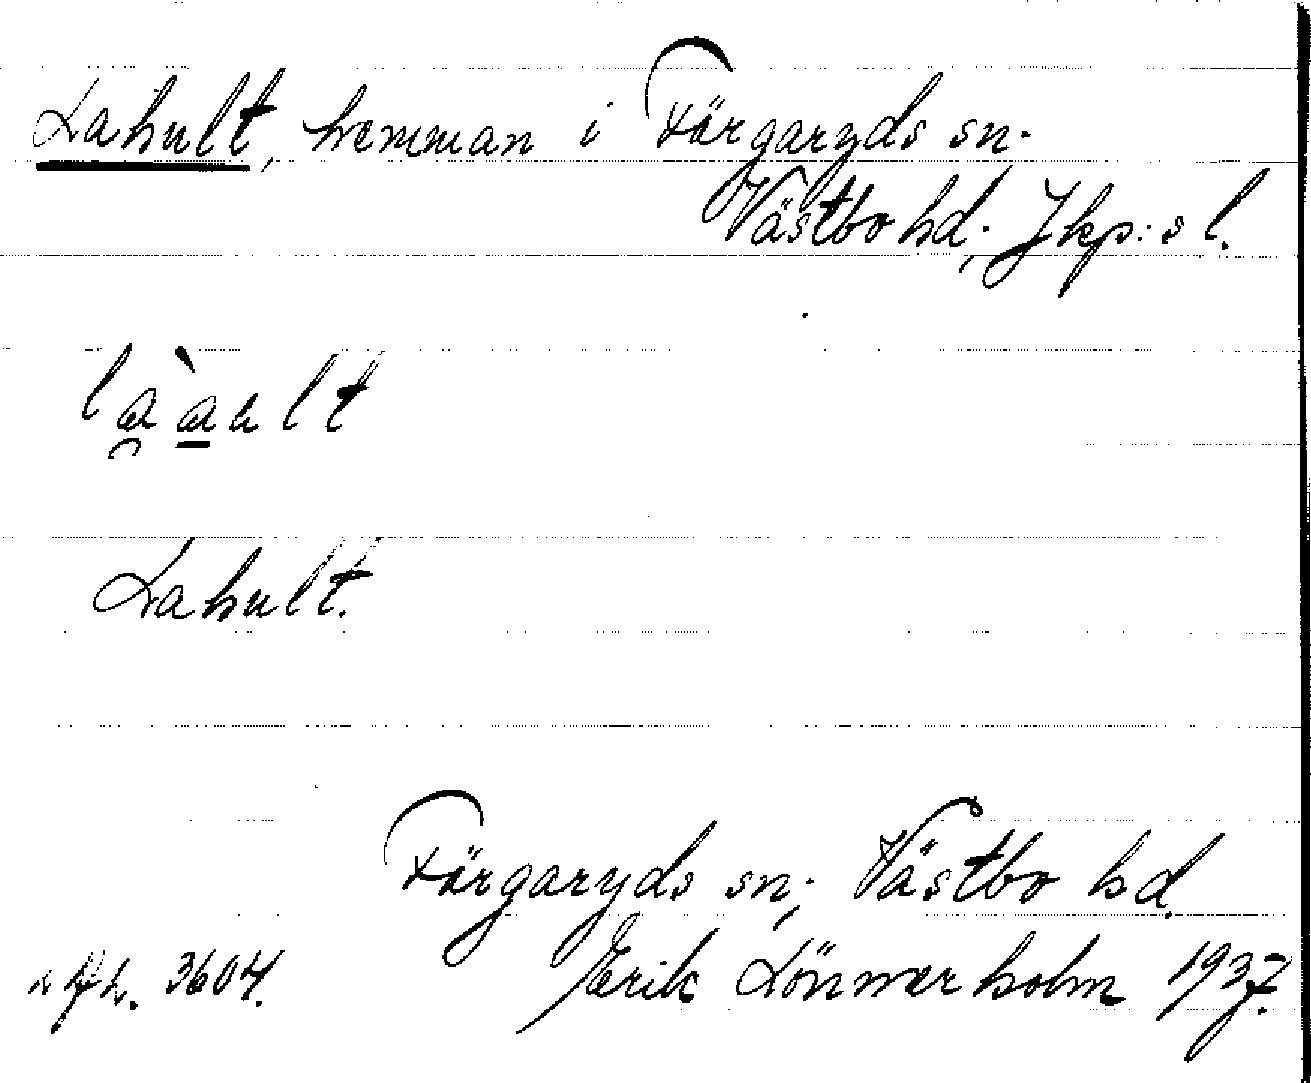 Lahult, hemman i Färgaryds sn.
Västbo hd; Jkp:s l.
la̯à̱ult
Lahult.
Färgaryds sn; Västbo hd.
3604. Erik Lönnerholm 1937.